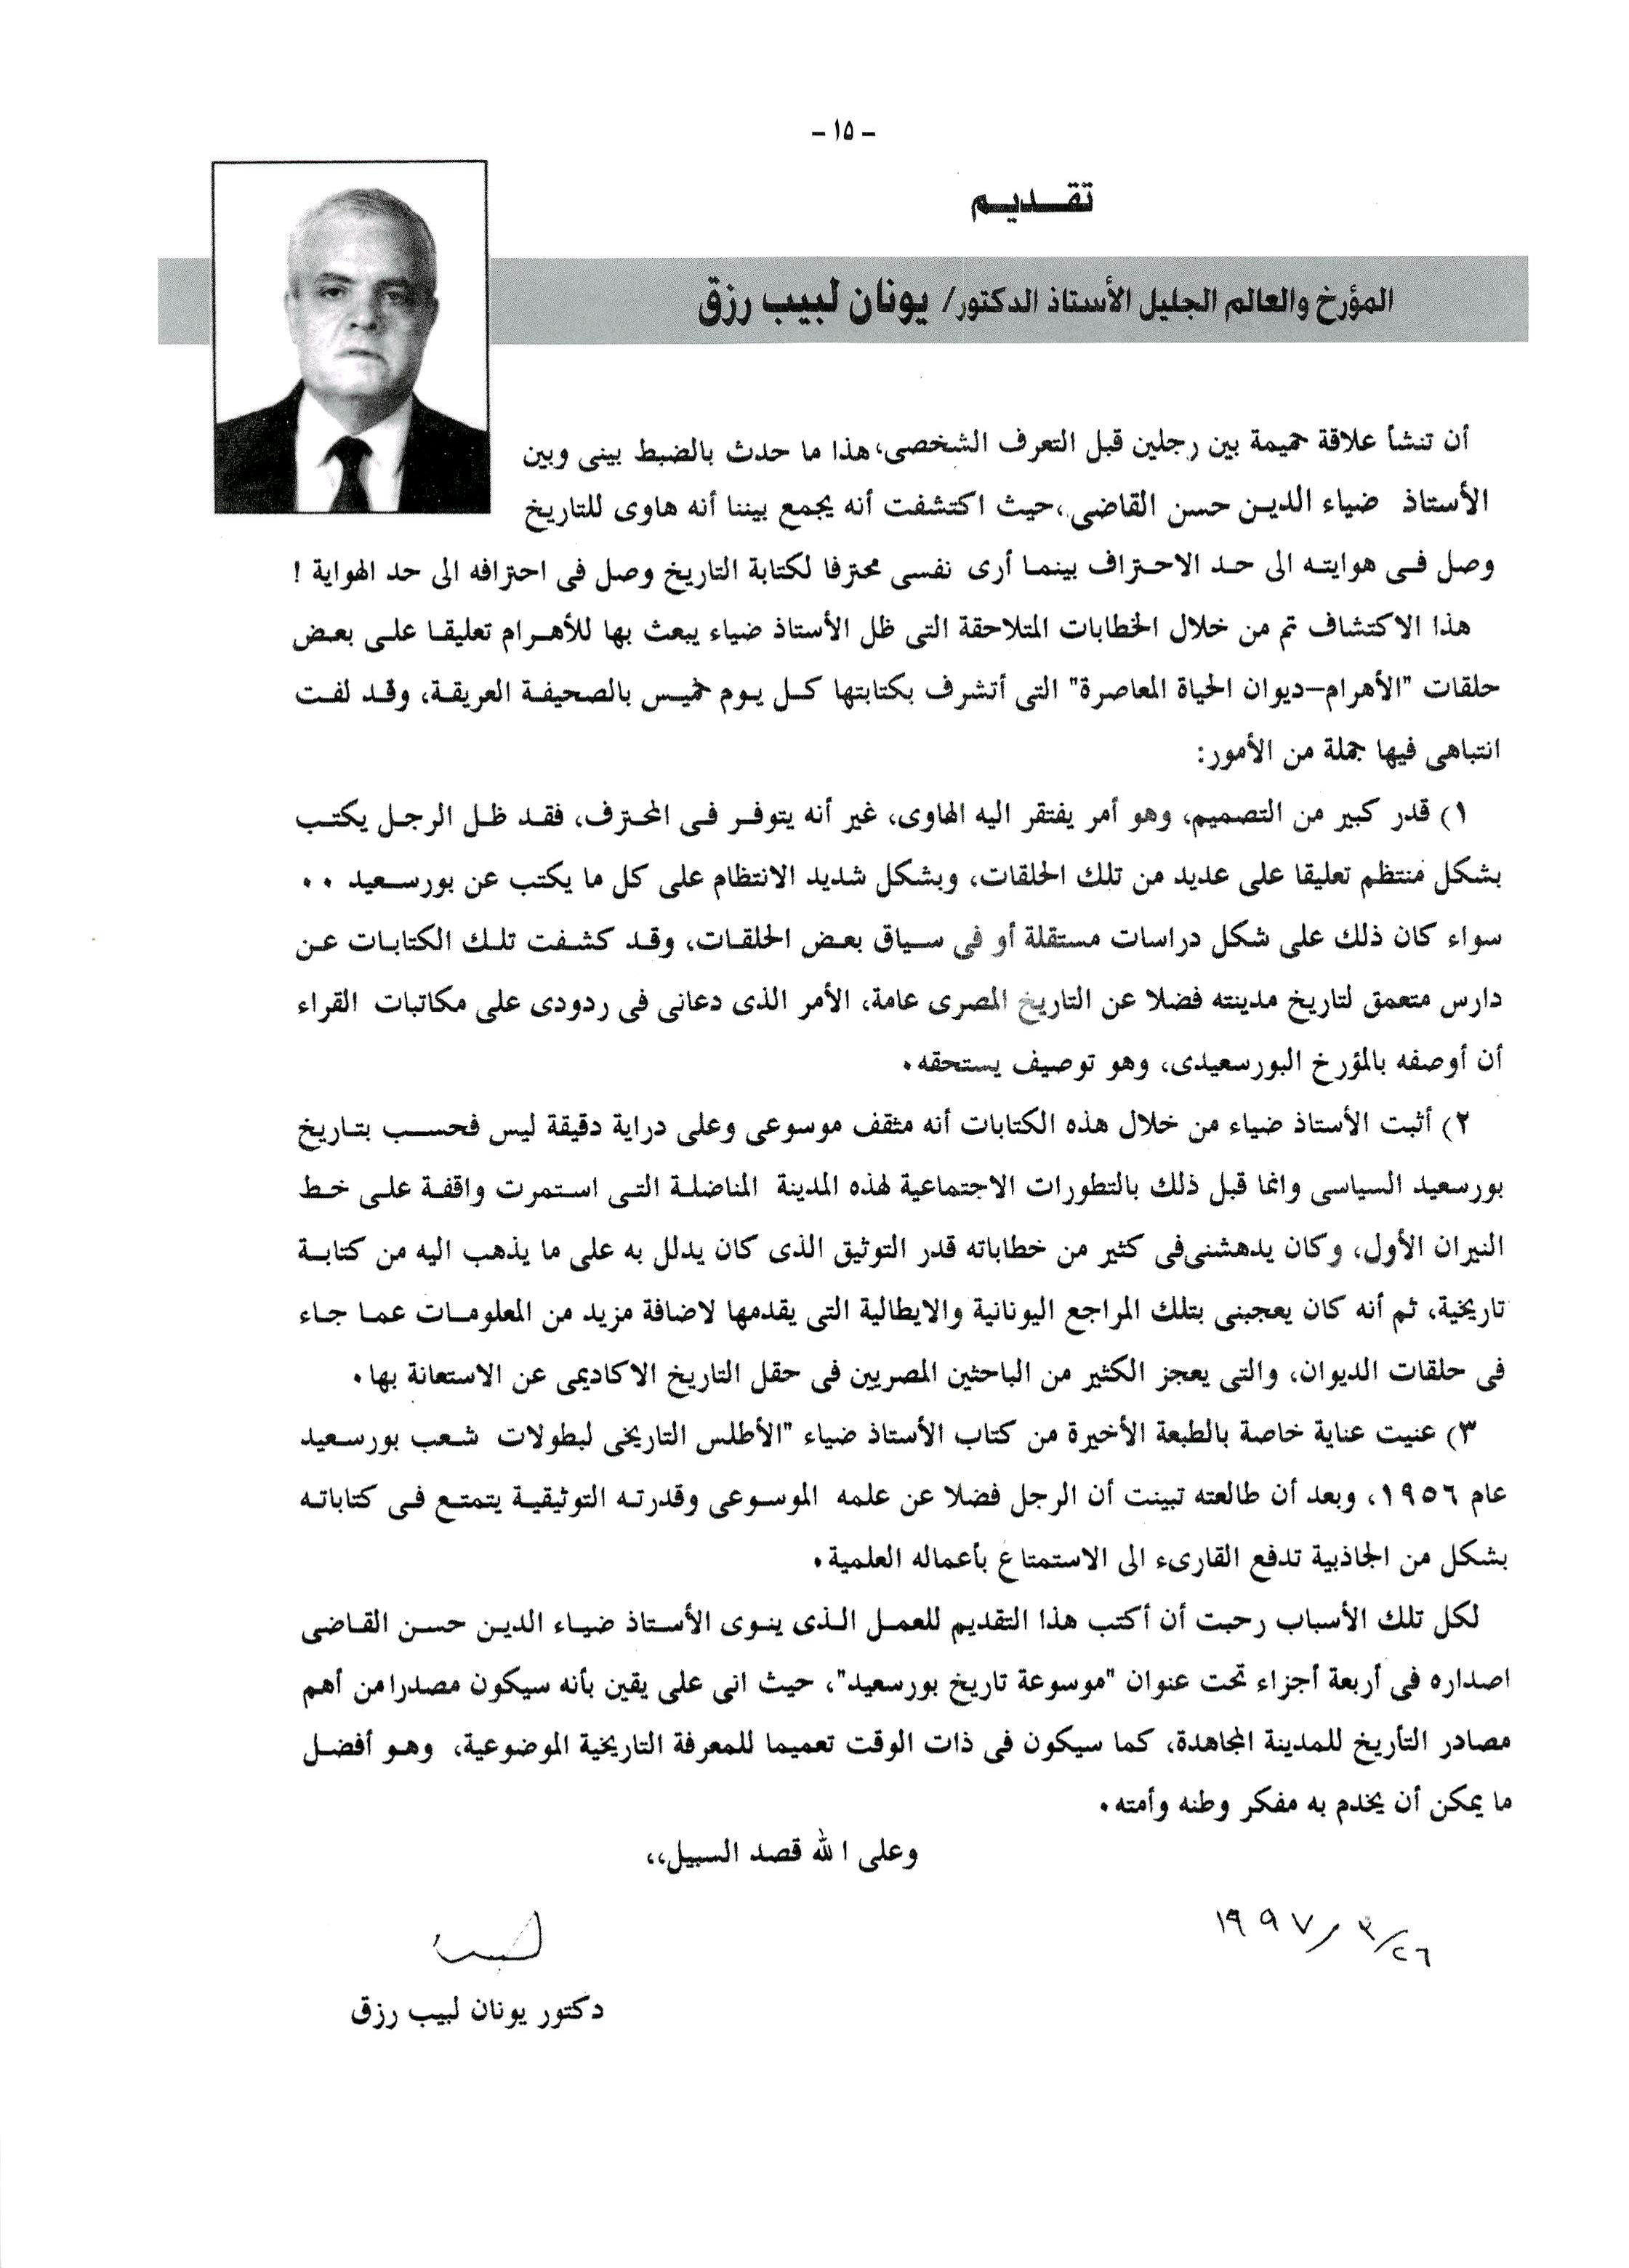 - ١٥ -
تقديم
المؤرخ والعالم الجليل الأستاذ الدكتور/ يونان لبيب رزق
أن تنشأ علاقة حميمة بين رجلين قبل التعرف الشخصى،هذا ما حدث بالضبط بينى وبين
الأستاذ ضياء الدين حسن القاضى،حيث اكتشفت أنه يجمع بيننا أنه هاوى للتاريخ
وصل فى هوايته الى حد الاحتراف بينما أرى نفسى محترفا لكتابة التاريخ وصل فى احترافه الى حد الهواية !
هذا الاكتشاف تم من خلال الخطابات المتلاحقة التى ظل الأستاذ ضياء يبعث بها للأهرام تعليقا على بعض
حلقات "الأهرام–ديوان الحياة المعاصرة" التى أتشرف بكتابتها كل يوم خميس بالصحيفة العريقة، وقد لفت
انتباهى فيها جملة من الأمور:
١) قدر كبير من التصميم، وهو أمر يفتقر اليه الهاوى، غير أنه يتوفر فى المحترف، فقد ظل الرجل يكتب
بشكل منتظم تعليقا على عديد من تلك الحلقات، وبشكل شديد الانتظام على كل ما يكتب عن بورسعيد ٠٠
سواء كان ذلك على شكل دراسات مستقلة أو فى سياق بعض الحلقات، وقد كشفت تلك الكتابات عن
دارس متعمق لتاريخ مدينته فضلا عن التاريخ المصرى عامة، الأمر الذى دعانى فى ردودى على مكاتبات القراء
أن أوصفه بالمؤرخ البورسعيدى، وهو توصيف يستحقه٠
٢) أثبت الأستاذ ضياء من خلال هذه الكتابات أنه مثقف موسوعى وعلى دراية دقيقة ليس فحسب بتاريخ
بورسعيد السياسى وانما قبل ذلك بالتطورات الاجتماعية لهذه المدينة المناضلة التى استمرت واقفة على خط
النيران الأول، وكان يدهشنى فى كثير من خطاباته قدر التوثيق الذى كان يدلل به على ما يذهب اليه من كتابة
تاريخية، ثم أنه كان يعجبنى بتلك المراجع اليونانية والايطالية التى يقدمها لاضافة مزيد من المعلومات عما جاء
فى حلقات الديوان، والتى يعجز الكثير من الباحثين المصريين فى حقل التاريخ الاكاديمى عن الاستعانة بها٠
٣) عنيت عناية خاصة بالطبعة الأخيرة من كتاب الأستاذ ضياء "الأطلس التاريخى لبطولات شعب بورسعيد
عام ١٩٥٦، وبعد أن طالعته تبينت أن الرجل فضلا عن علمه الموسوعى وقدرته التوثيقية يتمتع فى كتاباته
بشكل من الجاذبية تدفع القارىء الى الاستمتاع بأعماله العلمية٠
لكل تلك الأسباب رحبت أن أكتب هذا التقديم للعمل الذى ينوى الأستاذ ضياء الدين حسن القاضى
اصداره فى أربعة أجزاء تحت عنوان "موسوعة تاريخ بورسعيد"، حيث انى على يقين بأنه سيكون مصدرا من أهم
مصادر التأريخ للمدينة المجاهدة، كما سيكون فى ذات الوقت تعميما للمعرفة التاريخية الموضوعية، وهو أفضل
ما يمكن أن يخدم به مفكر وطنه وأمته٠
وعلى الله قصد السبيل،،
٢٦/٣/١٩٩٧
دكتور يونان لبيب رزق